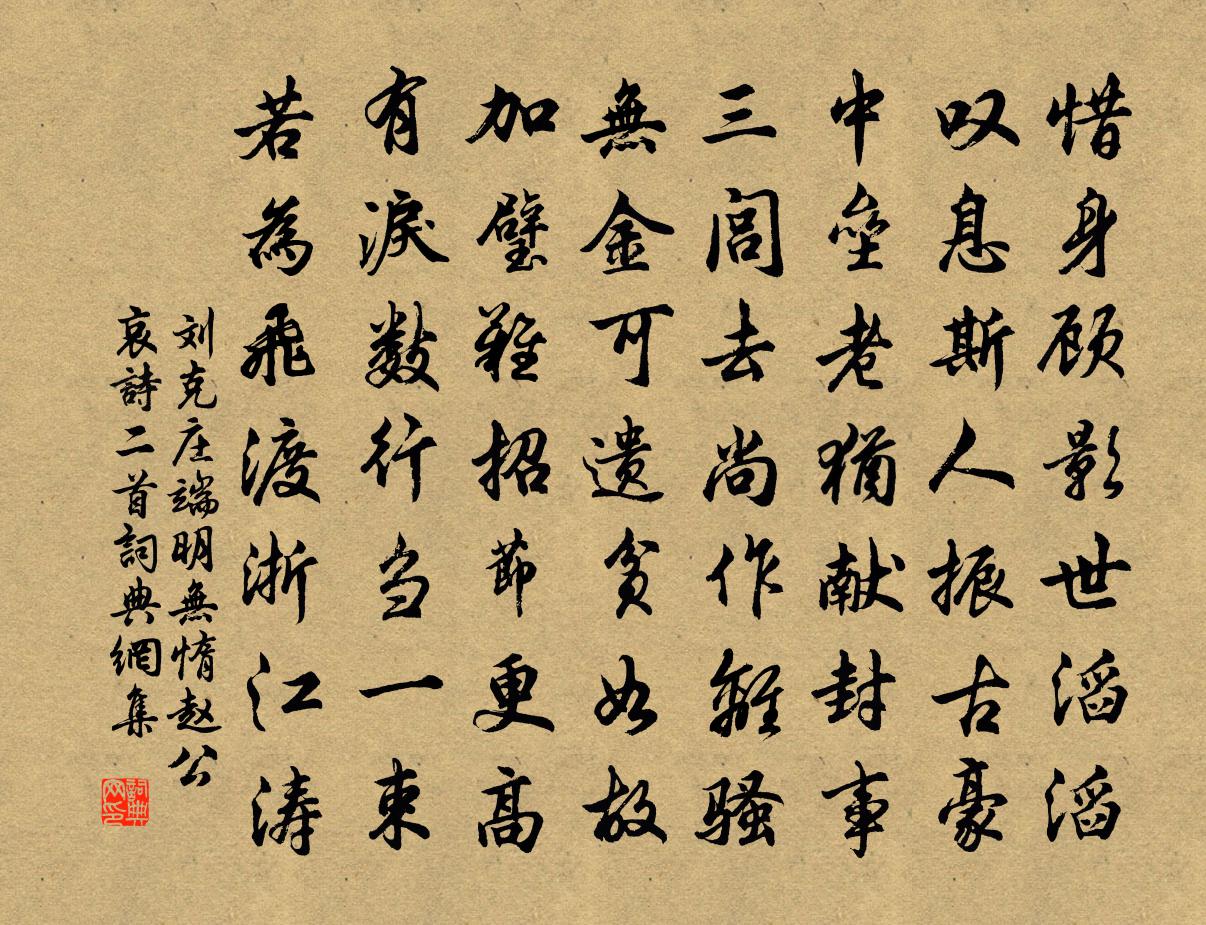 惜身顾影世滔滔
叹息斯人振古豪
中垒老犹献封事
三闾去尚作离骚
無金可遗贫如故
加璧难招節更高
有淚数行刍一束
若為飛渡浙江涛
刘克庄端明無惰赵公
哀詩二首詞典網集
詞典网印